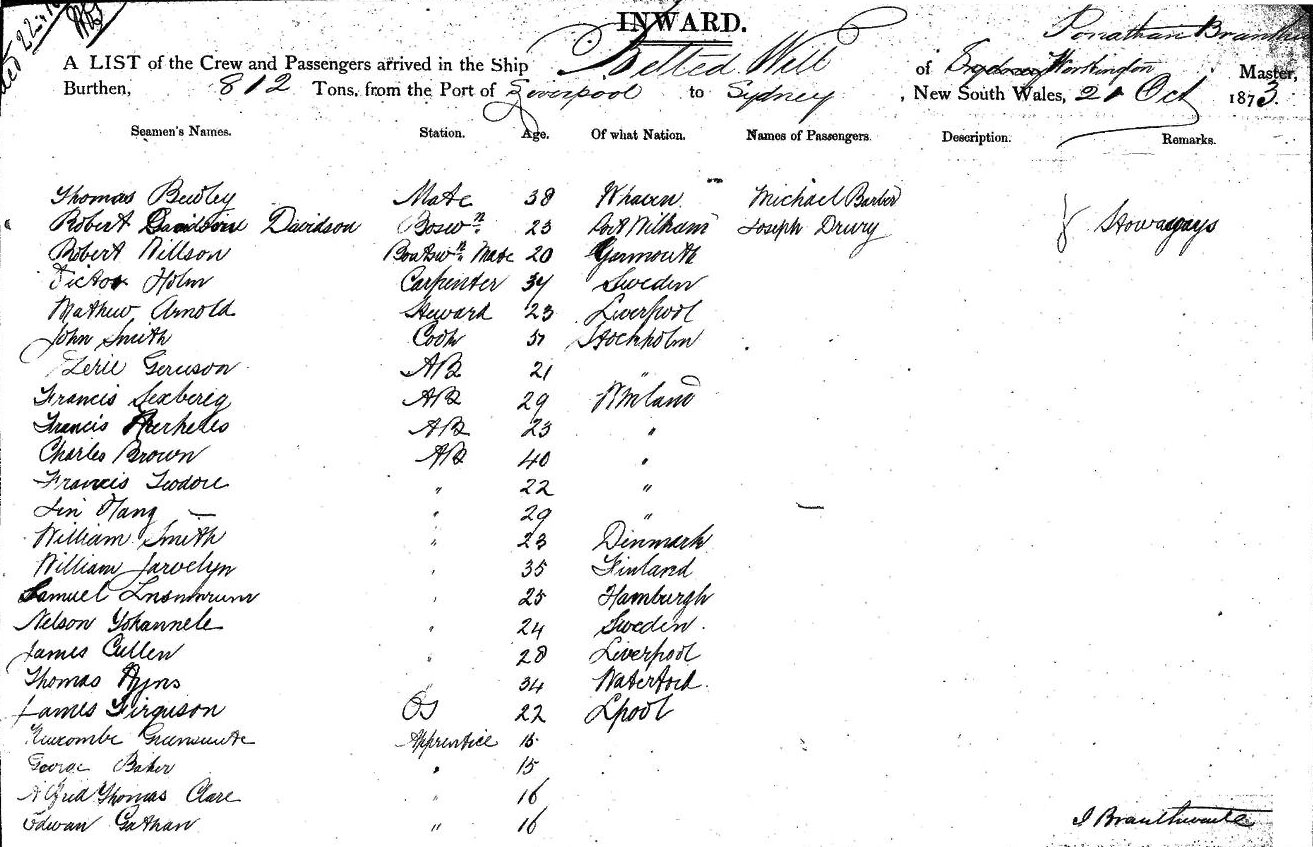 INWARD.
Jonathan
A LIST of the Crew and Passengers arrived in the Ship Belted Will of Workington Master,
Burthen, 812 Tons, from the Port of Liverpool to Sydney, New South Wales, 21 Oct 1873.
Seamen's Names. Station. Age. Of what Nation. Names of Passengers. Description. Remarks.
Thomas Bewley Mate 38 Michael Barber
Robert Davidson Boswn 23 Port William Joseph Drury Stowaways
Robert Willson Boatswn Mate 20 Yarmouth
Victor Holm Carpenter 34 Sweden
Mathew Arnold Steward 23 Liverpool
John Smith Cook 51 Stockholm
AB 21 "
Francis AB 29
Francis AB 23 "
Charles Brown AB 40 "
Francis Teodore " 22 "
" 29 "
William Smith " 23 Dinmark
William Jarvelyn " 35 Finland
Samuel " 25 Hamburgh
Nelson Yohannele " 24 Sweden
James Cullen " 28 Liverpool
Thomas " 34 Waterford
James Ferguson OS 22 Lpool
Apprentice 15
George Baker " 15
Alfred Thomas Clare " 16
Edwan Gathan " 16
J Branthwaite